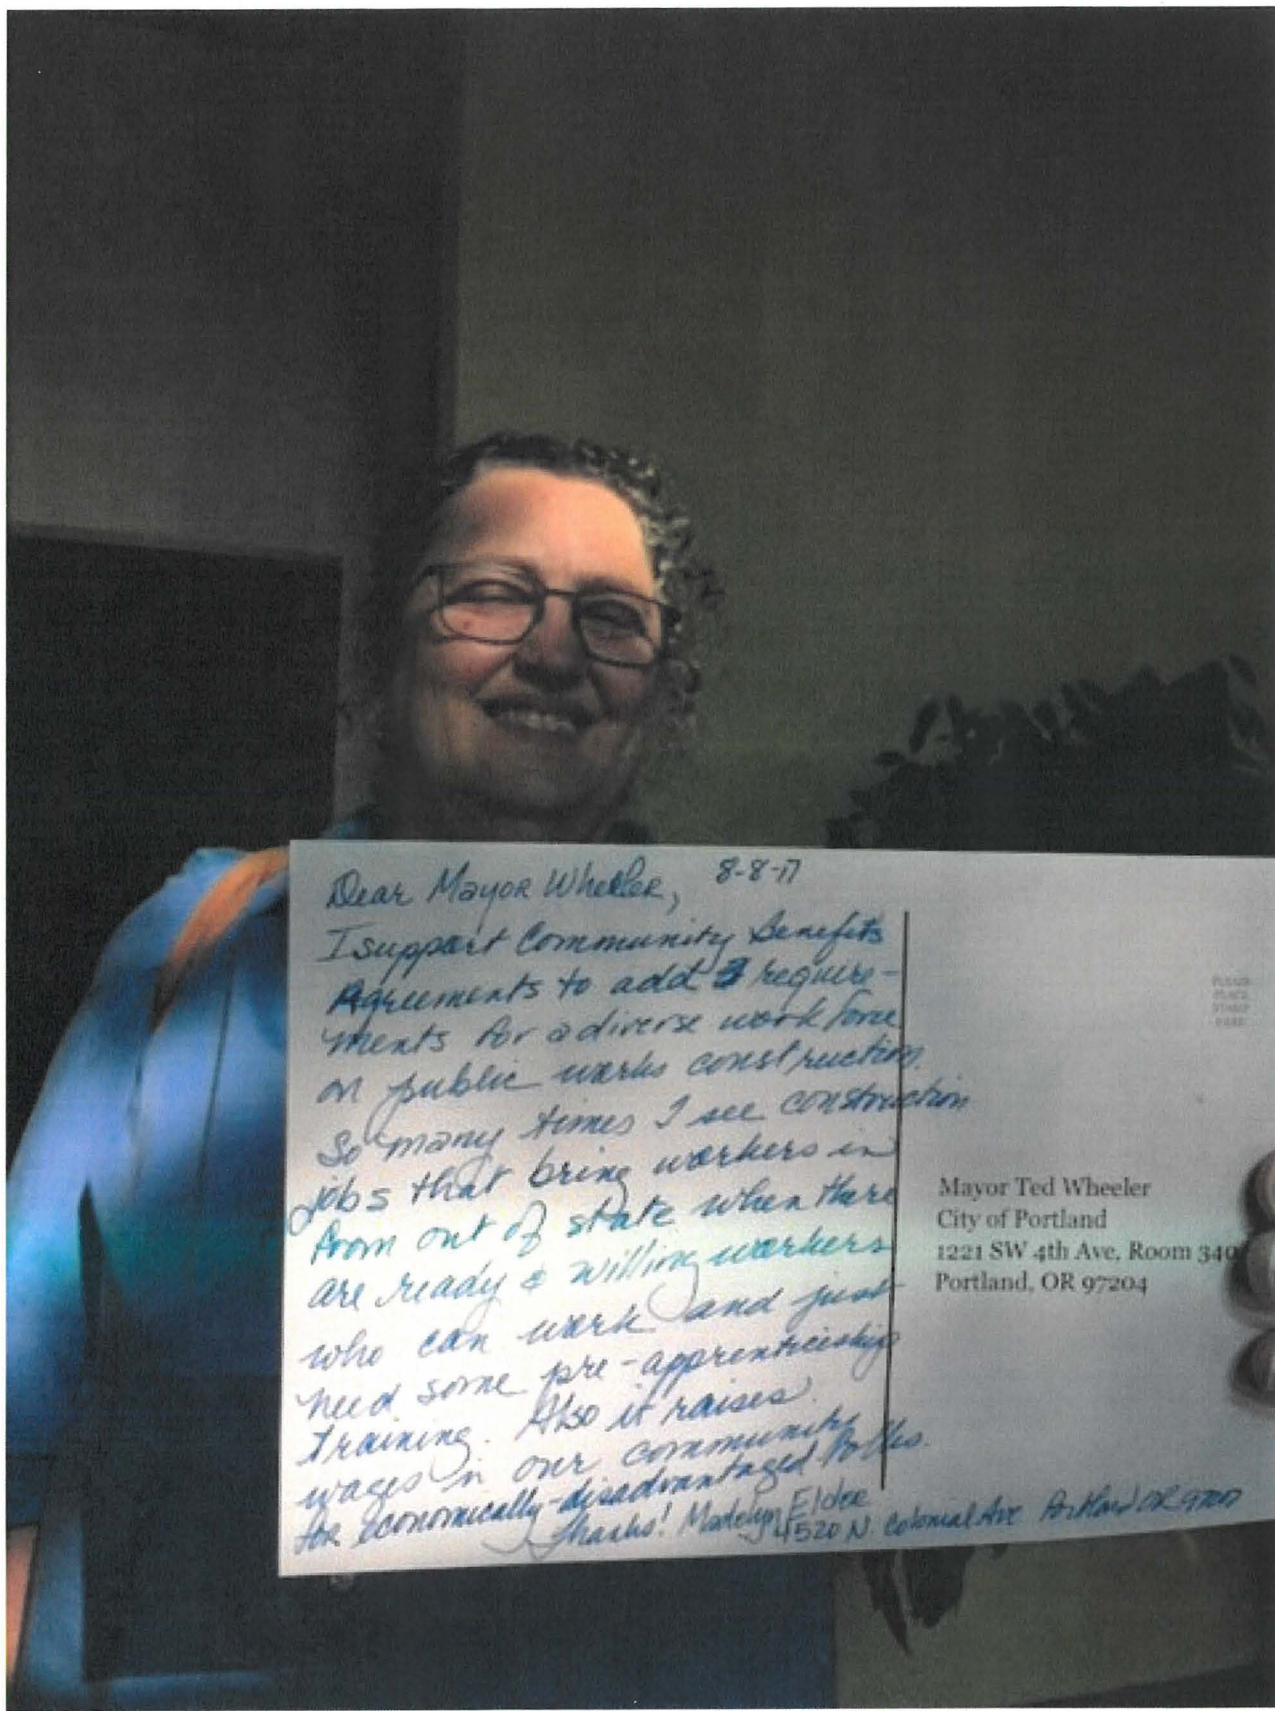 Dear Mayor Wheeler, 8-8-17
I support Community Benefits
Agreements to add require-
ments for a diverse workforce
on public works construction.
So many times I see construction
jobs that bring workers in
from out of state when there
are ready & willing workers
who can work and just
need some pre-apprenticeship
training. Also it raises
wages in our community
for economically-disadvantaged folks.
Thanks! Madelyn Elder
4520 N. Colonial Ave Portland OR
PLEASE
PLACE
STAMP
HERE
Mayor Ted Wheeler
City of Portland
1221 SW 4th Ave, Room 340
Portland, OR 97204